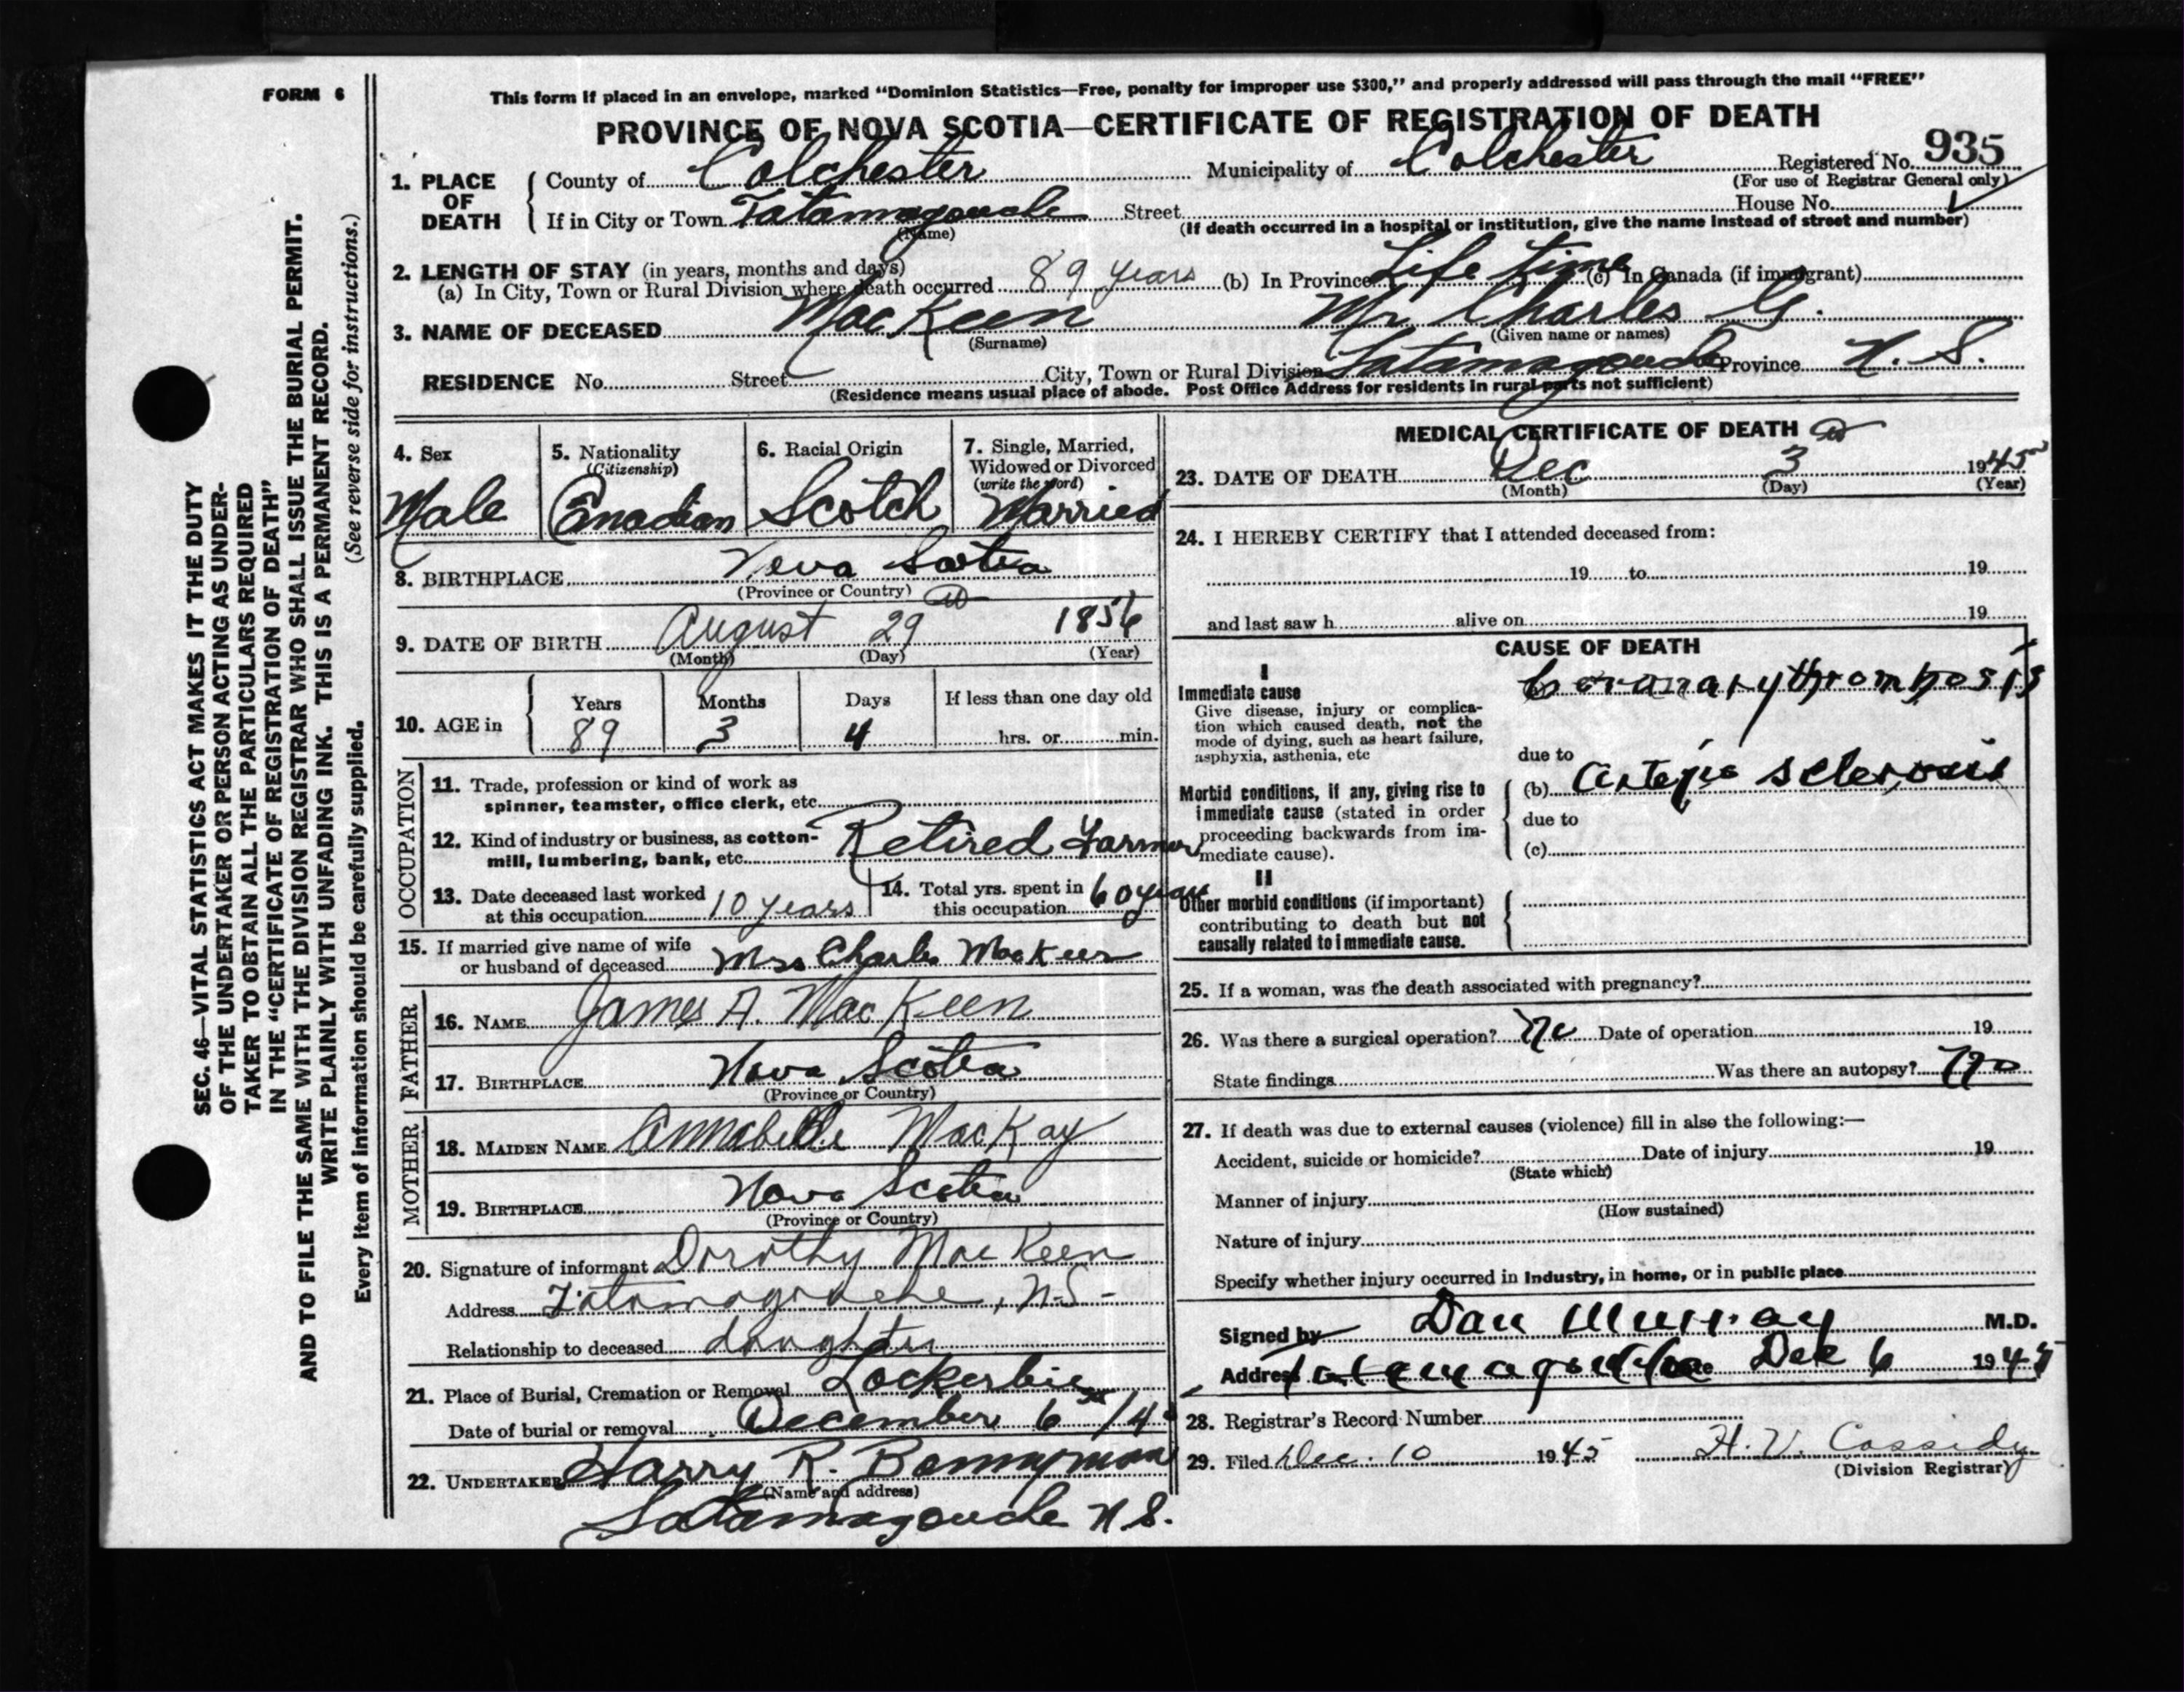 FORM 6
This form if placed in an envelope, marked "Dominion Statistics—Free, penalty for improper use $300," and properly addressed will pass through the mail "FREE"
PROVINCE OF NOVA SCOTIA—CERTIFICATE OF REGISTRATION OF DEATH
1. PLACE OF DEATH County of Colchester Municipality of Colchester Registered No. 935
(For use of Registrar General only)
If in City or Town Tatamagouche Street House No.
(Name) (If death occurred in a hospital or institution, give the name instead of street and number)
2. LENGTH OF STAY (in years, months and days)
(a) In City, Town or Rural Division where death occurred 89 years (b) In Province Life time (c) In Canada (if immigrant)
3. NAME OF DECEASED MacKeen Mr Charles G.
(Surname) (Given name or names)
RESIDENCE No. Street City, Town or Rural Division Tatamagouche Province N. S.
(Residence means usual place of abode. Post Office Address for residents in rural parts not sufficient)
4. Sex 5. Nationality (Citizenship) 6. Racial Origin 7. Single, Married, Widowed or Divorced (write the word)
Male Canadian Scotch Married
8. BIRTHPLACE Nova Scotia
(Province or Country)
9. DATE OF BIRTH August 29 1856
(Month) (Day) (Year)
10. AGE in Years Months Days If less than one day old
89 3 4 hrs. or min.
OCCUPATION
11. Trade, profession or kind of work as
spinner, teamster, office clerk, etc.
12. Kind of industry or business, as cotton-
mill, lumbering, bank, etc. Retired Farmer
13. Date deceased last worked at this occupation 10 years 14. Total yrs. spent in this occupation 60 years
15. If married give name of wife
or husband of deceased Mrs Charles MacKeen
FATHER
16. NAME James A. MacKeen
17. BIRTHPLACE Nova Scotia
(Province or Country)
MOTHER
18. MAIDEN NAME Annabelle MacKay
19. BIRTHPLACE Nova Scotia
(Province or Country)
20. Signature of informant Dorothy MacKeen
Address Tatamagouche, N.S.
Relationship to deceased daughter
21. Place of Burial, Cremation or Removal Lockerbie
Date of burial or removal December 6
22. UNDERTAKER Harry R. Bonnyman
(Name and address)
Tatamagouche N.S.
MEDICAL CERTIFICATE OF DEATH
23. DATE OF DEATH Dec 3 1945
(Month) (Day) (Year)
24. I HEREBY CERTIFY that I attended deceased from:
19 to 19
and last saw h alive on 19
CAUSE OF DEATH
I
Immediate cause Coronary thrombosis
Give disease, injury or complica-
tion which caused death, not the
mode of dying, such as heart failure,
asphyxia, asthenia, etc due to
Morbid conditions, if any, giving rise to (b) Arterio sclerosis
immediate cause (stated in order due to
proceeding backwards from im-
mediate cause). (c)
II
Other morbid conditions (if important)
contributing to death but not
causally related to immediate cause.
25. If a woman, was the death associated with pregnancy?
26. Was there a surgical operation? No Date of operation 19
State findings Was there an autopsy? No
27. If death was due to external causes (violence) fill in also the following:—
Accident, suicide or homicide? Date of injury 19
(State which)
Manner of injury
(How sustained)
Nature of injury
Specify whether injury occurred in Industry, in home, or in public place
Signed by Dan Murray M.D.
Address Tatamagouche Date Dec 6 1945
28. Registrar's Record Number
29. Filed Dec. 10 1945 H. V. Cassidy
(Division Registrar)
SEC. 46—VITAL STATISTICS ACT MAKES IT THE DUTY
OF THE UNDERTAKER OR PERSON ACTING AS UNDER-
TAKER TO OBTAIN ALL THE PARTICULARS REQUIRED
IN THE "CERTIFICATE OF REGISTRATION OF DEATH"
AND TO FILE THE SAME WITH THE DIVISION REGISTRAR WHO SHALL ISSUE THE BURIAL PERMIT.
WRITE PLAINLY WITH UNFADING INK. THIS IS A PERMANENT RECORD.
(See reverse side for instructions.)
Every item of information should be carefully supplied.